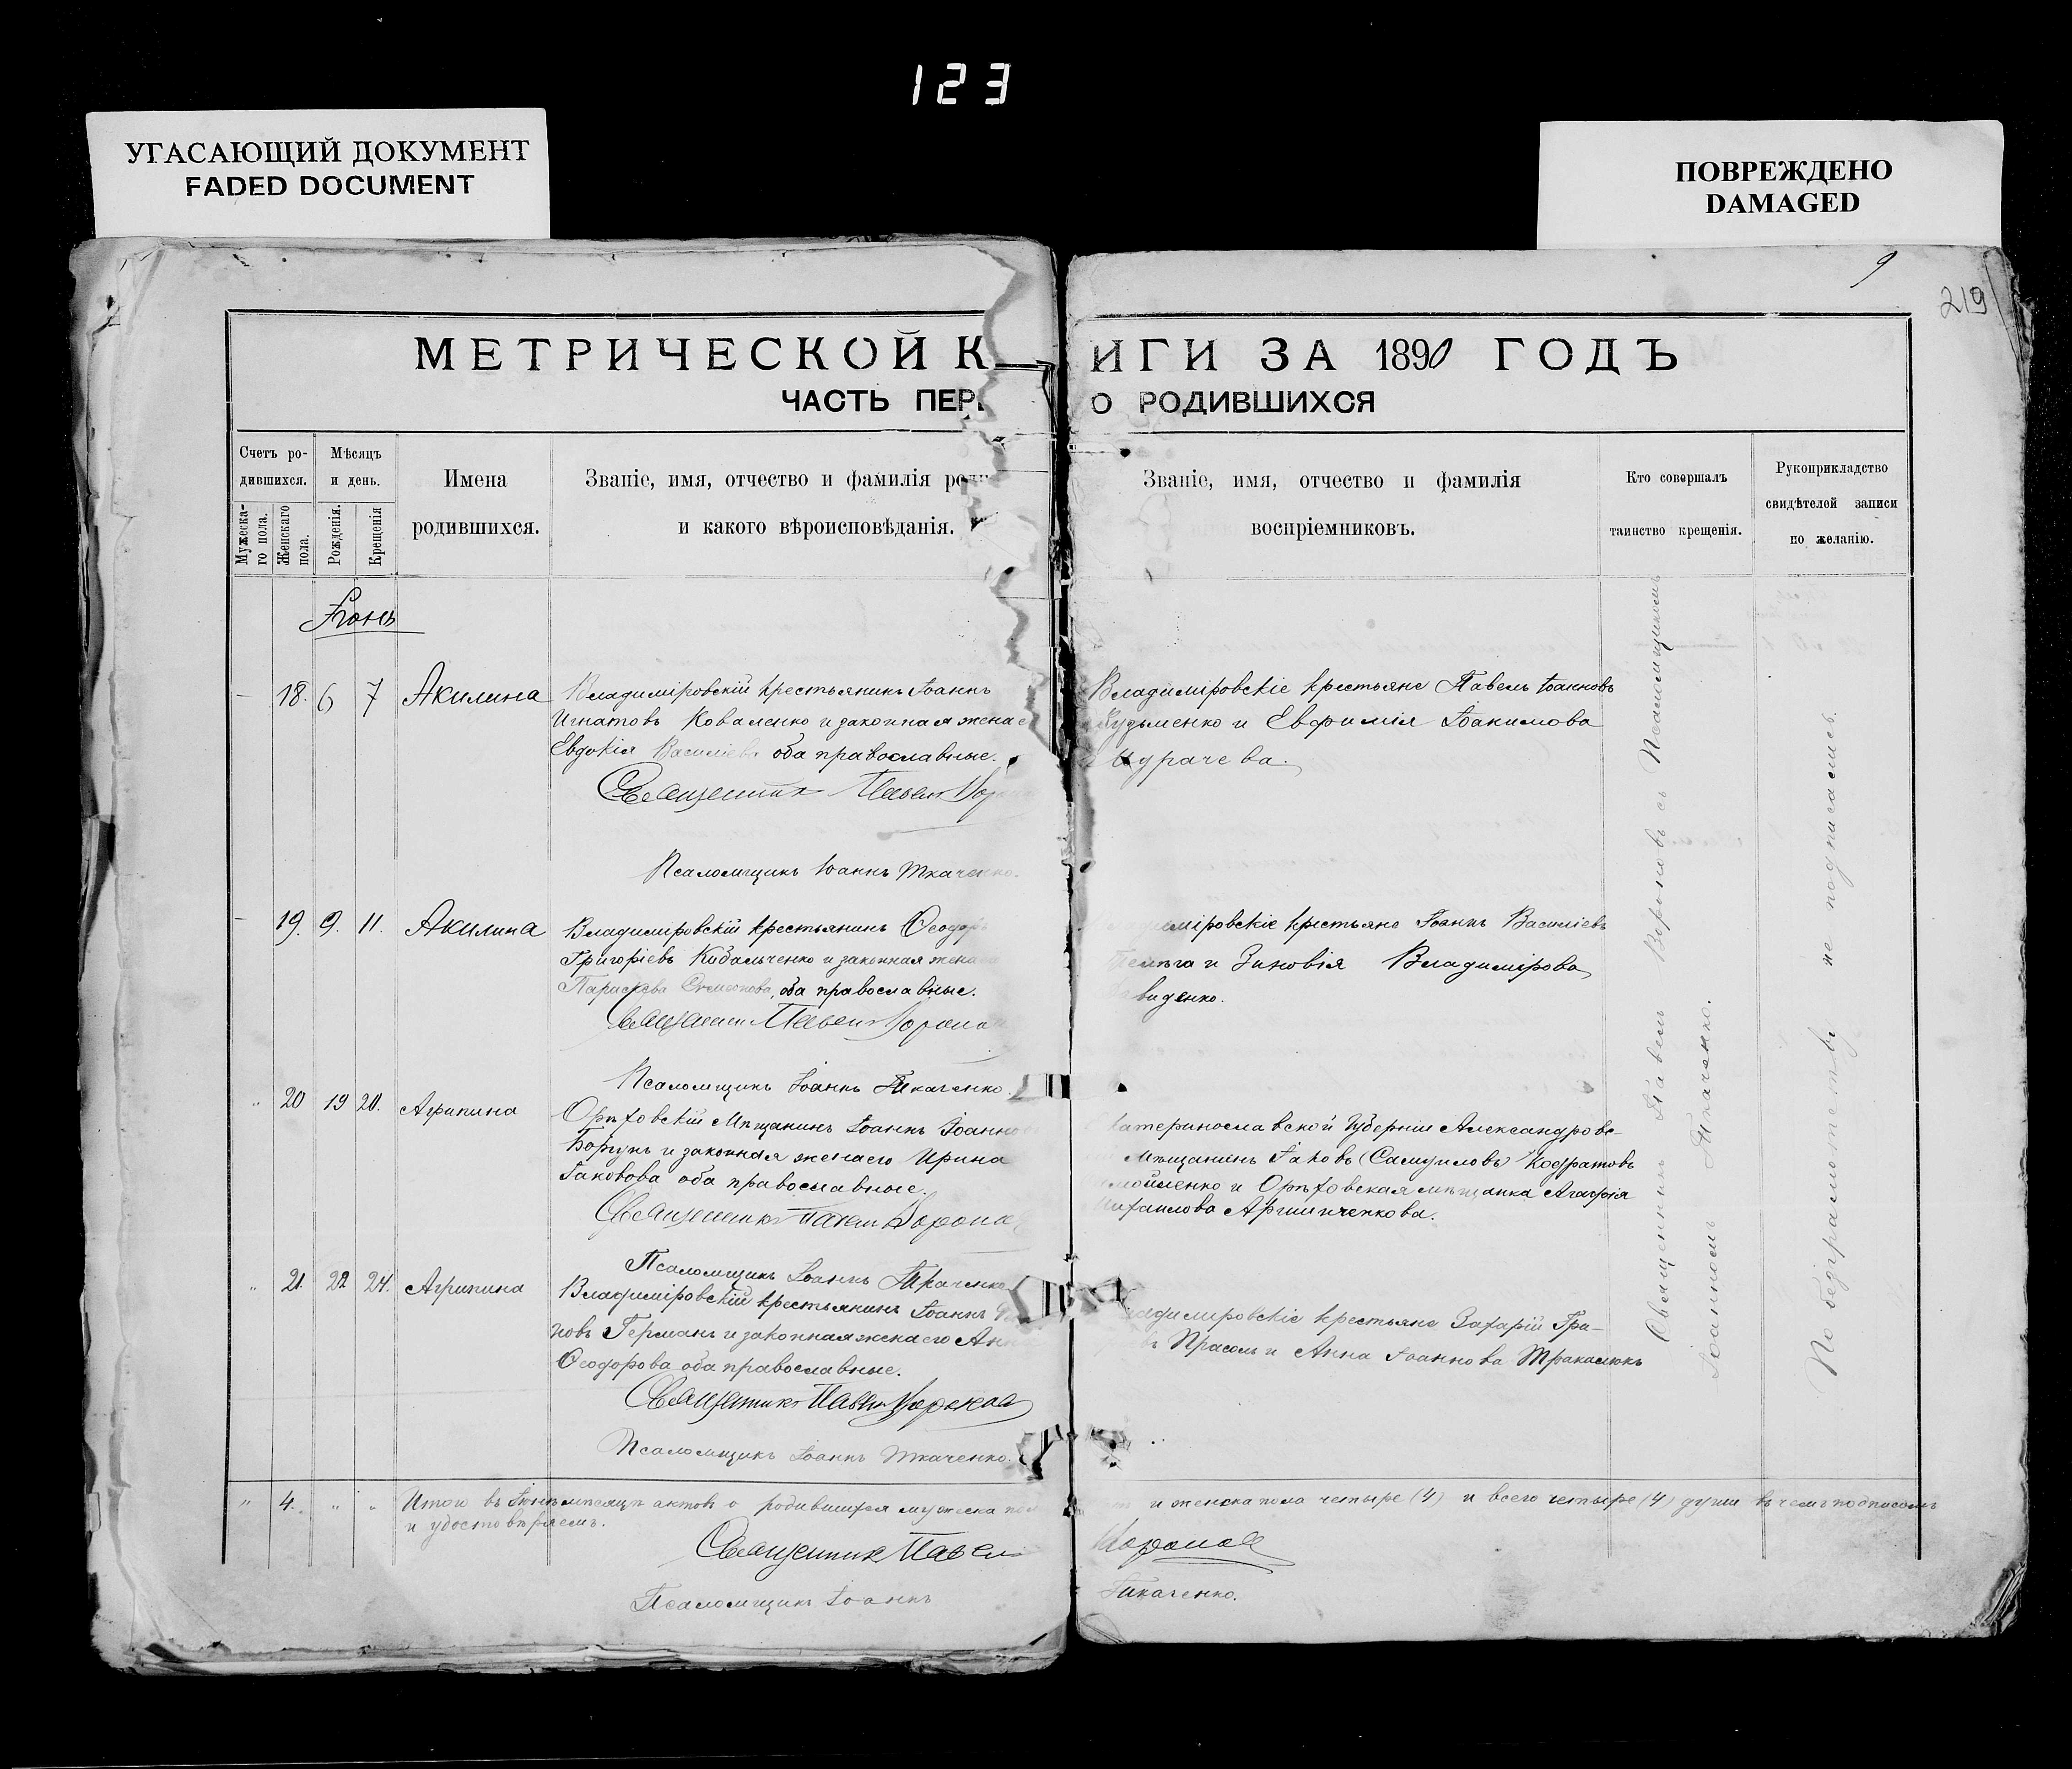 123
УГАСАЮЩИЙ ДОКУМЕНТ
FADED DOCUMENT
ПОВРЕЖДЕНО
DAMAGED
9
219
МЕТРИЧЕСКОЙ К ИГИ ЗА 1890 ГОДЪ
ЧАСТЬ ПЕР О РОДИВШИХСЯ
Счетъ ро-
дившихся.
Мужеска-
го пола.
Женскаго
пола.
Мѣсяцъ
и день.
Рожденія.
Крещенія
Имена
родившихся.
Званіе, имя, отчество и фамилія
и какого вѣроисповѣданія.
Званіе, имя, отчество и фамилія
воспріемниковъ.
Кто совершалъ
таинство крещенія.
Рукоприкладство
свидѣтелей записи
по желанію.
Іюнь
18. 6 7 Акилина
Владиміровскій крестьянинъ Іоаннъ
Игнатовъ Коваленко и законная жена е
Евдокія Василіева оба православные.
Священникъ Павелъ
Псаломщикъ Іоаннъ Ткаченко.
Владиміровскіе крестьяне Павелъ Іоанновъ
Кузьменко и Евфимія Іоакимова
19. 9. 11. Акилина
Владиміровскій крестьянинъ Ѳеодоръ
Григоріевъ Ковальченко и законная жена
Параскева Симеонова, оба православные.
Священникъ Павелъ
Псаломщикъ Іоаннъ Ткаченко.
міровскіе крестьяне Іоаннъ Василіевъ
и Зиновія Владимірова
виденко.
20 19 20. Агрипина
Орѣховскій Мѣщанинъ Іоаннъ Іоанно
и законная жена его Ирина
Іаковова оба православные.
Священникъ Павелъ
Псаломщикъ Іоаннъ Ткаченко
катеринославской Губерніи Александровс-
Мѣщанинъ Іаковъ (Самуиловъ) Кодратовъ
мойленко и Орѣховская мѣщанка Агафія
Михаилова
21. 22 24. Агрипина
Владиміровскій крестьянинъ Іоаннъ
новъ Германъ и законная жена его Ан
Ѳеодорова оба православные.
Священникъ Павелъ
Псаломщикъ Іоаннъ Ткаченко.
адиміровскіе крестьяне Захарій Гри-
въ Прасолъ и Анна Іоаннова
Священникъ Павелъ съ Псаломщикомъ
Іоанномъ Ткаченко.
По безграмотству не подписались.
" 4. " " Итого въ Іюнѣ мѣсяцѣ актовъ о родившихся мужеска пол и женска пола четыре (4) и всего четыре (4) души въ чемъ подписомъ
и удостовѣряемъ.
Священникъ Павелъ
Псаломщикъ Іоаннъ Ткаченко.